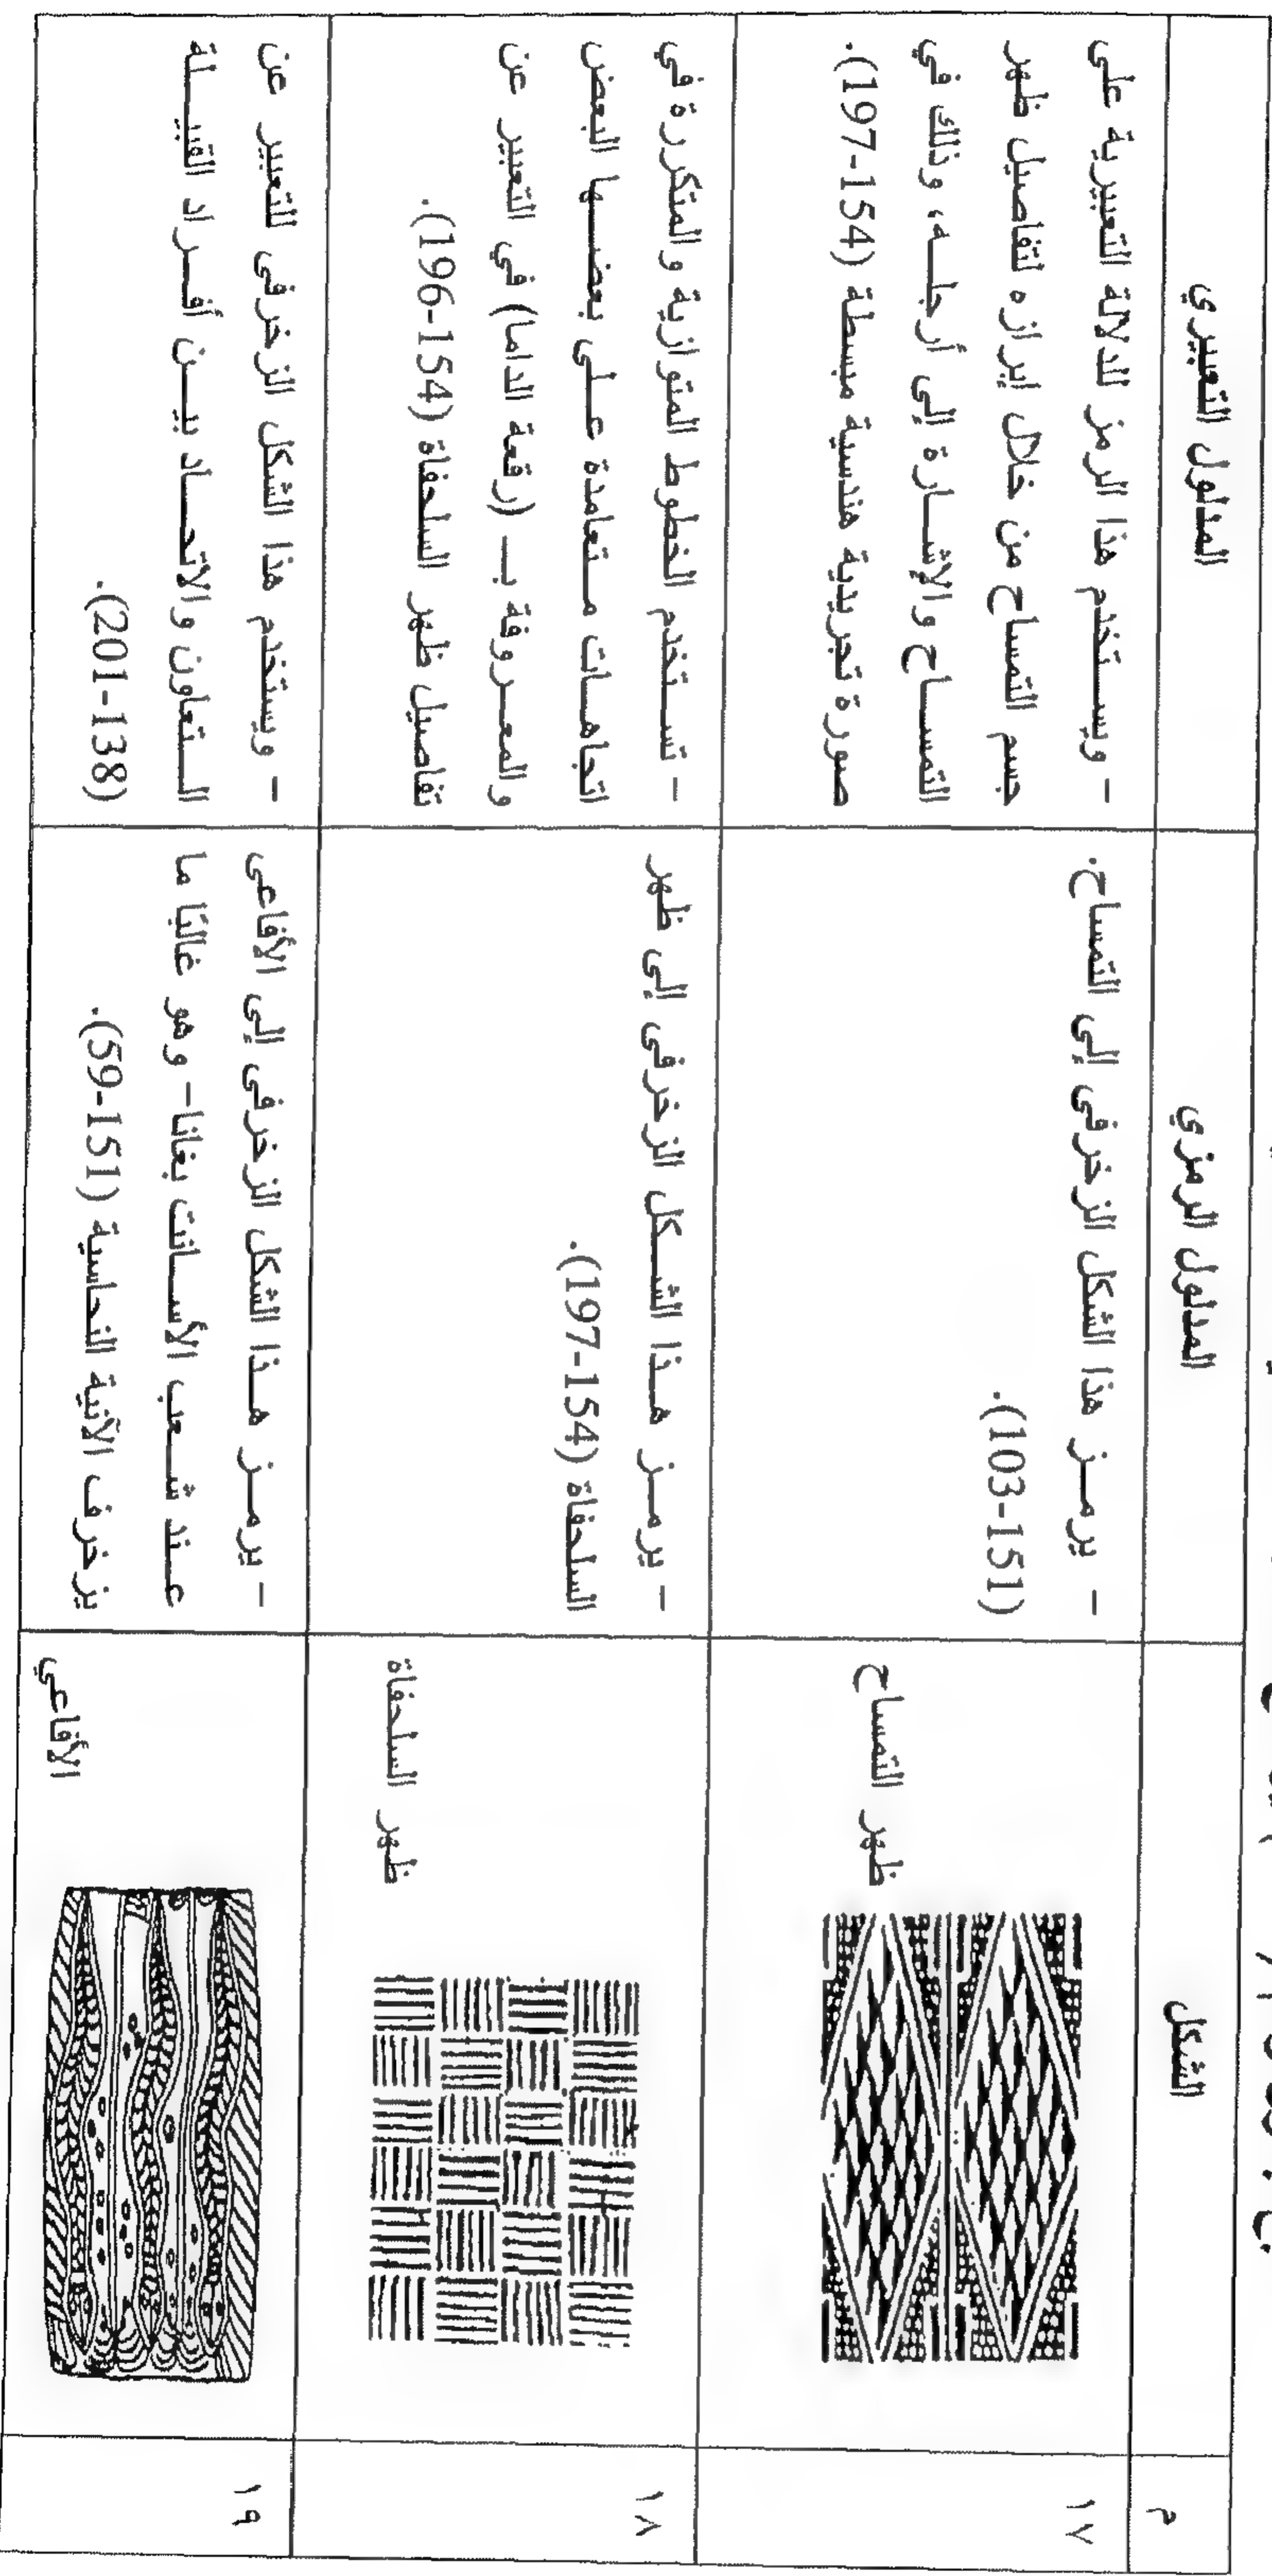 م
الشكل
المدلول الرمزي
المدلول التعبيري
١٧
ظهر التمساح
- يرمز هذا الشكل الزخرفى إلى التمساح.
(103-151).
- ويستخدم هذا الرمز للدلالة التعبيرية على
جسم التمساح من خلال إبرازه لتفاصيل ظهر
التمساح والإشارة إلى أرجله، وذلك في
صورة تجريدية هندسية مبسطة (154-197).
١٨
ظهر السلحفاة
- يرمز هذا الشكل الزخرفى إلى ظهر
السلحفاة (154-197).
- تستخدم الخطوط المتوازية والمتكررة في
اتجاهات متعامدة على بعضها البعض
والمعروفة بـ (رقعة الداما) في التعبير عن
تفاصيل ظهر السلحفاة (154-196).
١٩
الأفاعي
- يرمز هذا الشكل الزخرفى إلى الأفاعى
عند شعب الأسانت بغانا- وهو غالبًا ما
يزخرف الآنية النحاسية (151-59).
- ويستخدم هذا الشكل الزخرفى للتعبير عن
التعاون والاتحاد بين أفراد القبيلة
(201-138).